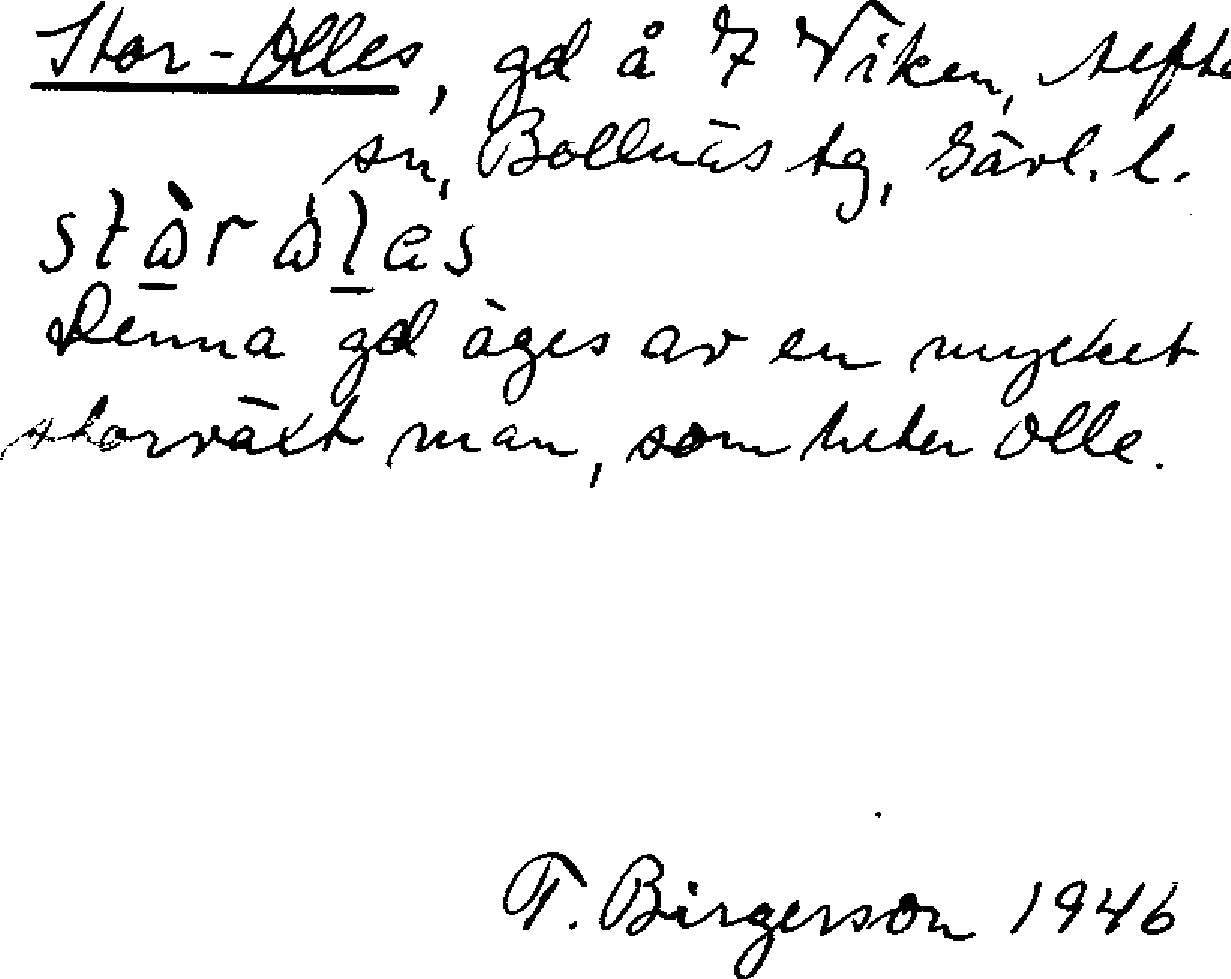 Stor-Olles, gd å 7 Viken, Alfta
sn, Bollnäs tg, Gävl. l.
Denna gd äges av en mycket
storväxt man, som heter Olle.
T. Birgerson 1946